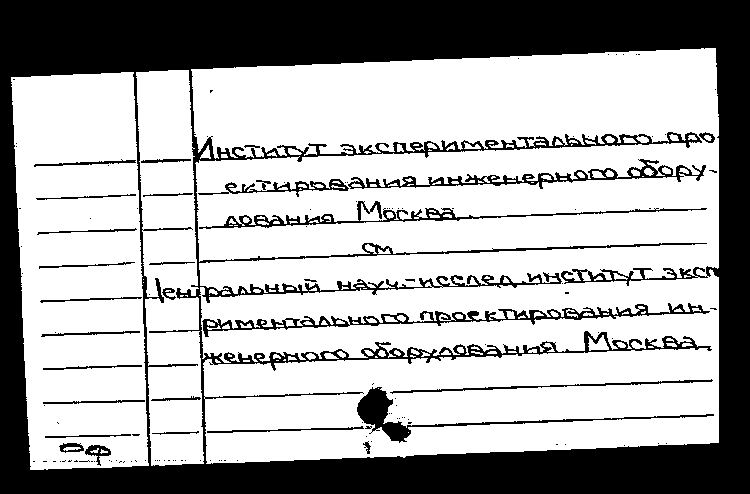 Институт экспериментального про-
ектирования инженерного обору-
дования Москва.
см
Центральный науч.-исслед. институт экспе
риментального проектирования ин-
женерного оборудования. Москва.
оф